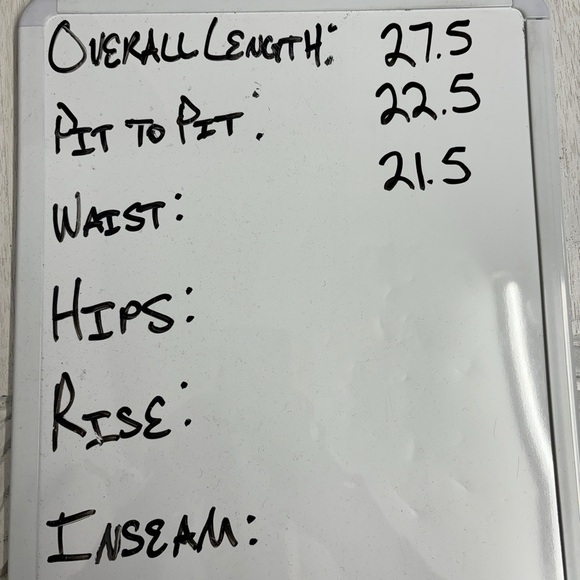 OVERALL LENGTH: 27.5
PIT TO PIT: 22.5
WAIST: 21.5
HIPS:
RISE:
INSEAM: